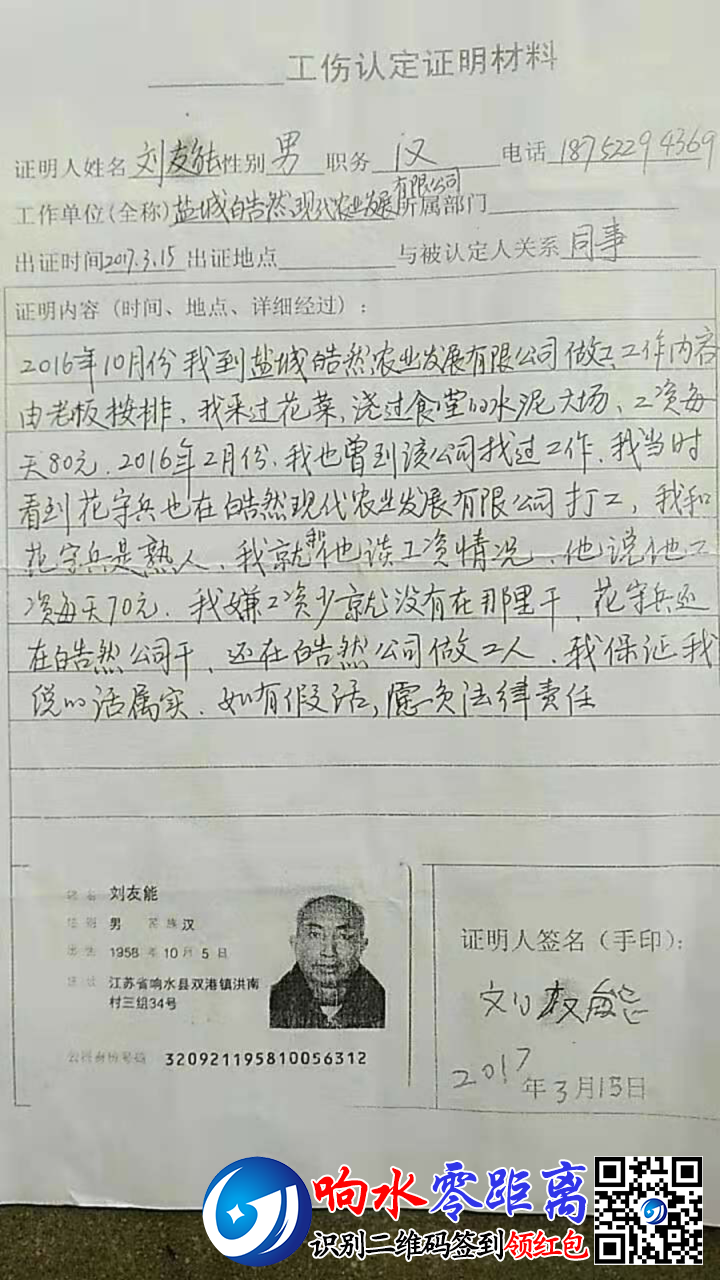 工伤认定证明材料
证明人姓名 刘友能 性别 男 职务 汉 电话 18752294369
工作单位(全称) 盐城皓然现代农业发展有限公司 所属部门
出证时间 2017.3.15 出证地点 与被认定人关系 同事
证明内容（时间、地点、详细经过）：
2016年10月份我到盐城皓然农业发展有限公司做工工作内容
由老板按排、我采过花菜,浇过食堂的水泥大场、工资每
天80元.2016年2月份.我也曾到该公司找过工作.我当时
看到花守兵也在皓然现代农业发展有限公司打工,我和
花守兵是熟人、我就和他谈工资情况、他说他工
资每天70元.我嫌工资少就没有在那里干,花守兵还
在皓然公司干、还在皓然公司做工人、我保证我
说的话属实.如有假话,愿负法律责任
姓名 刘友能
性别 男 民族 汉
出生 1958 年 10 月 5 日
住址 江苏省响水县双港镇洪南
村三组34号
公民身份号码 320921195810056312
证明人签名（手印）：
刘友能
2017年3月15日
响水零距离
识别二维码签到领红包